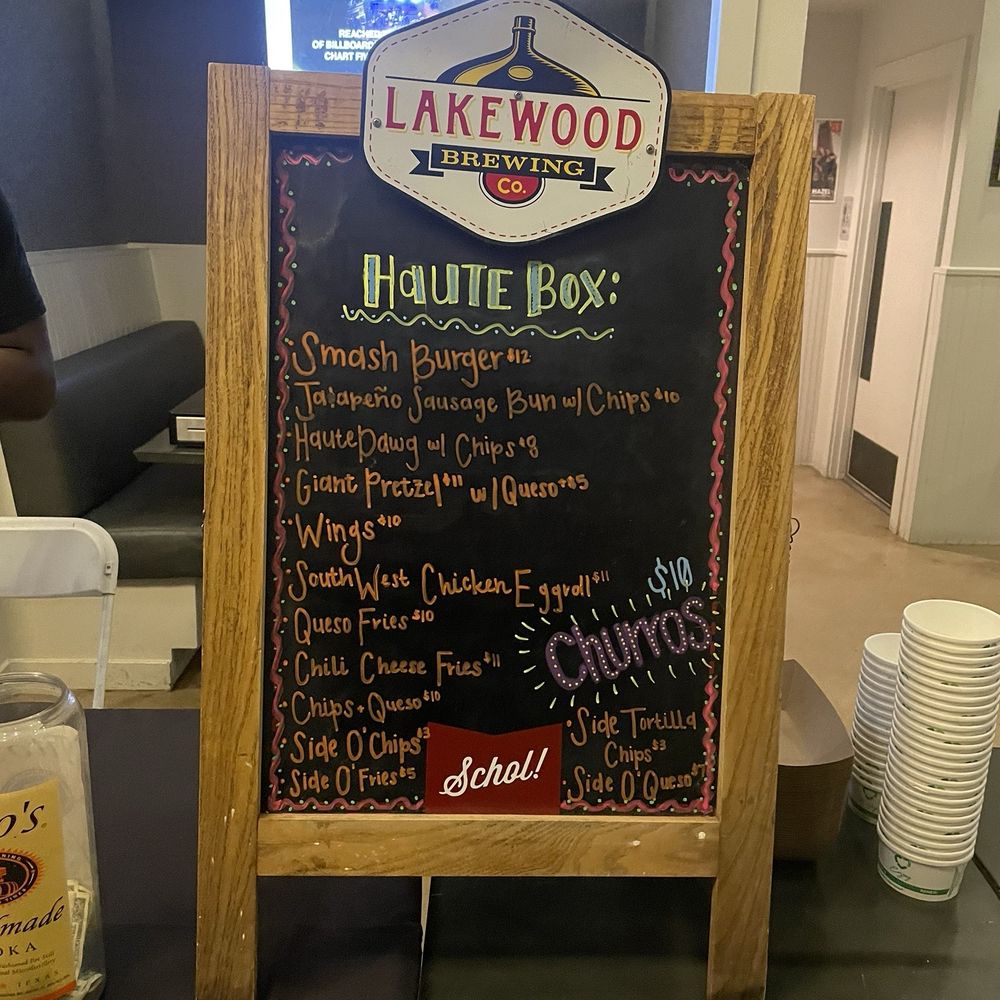 REACHED
OF BILLBOARD
CHART FI
LAKEWOOD
BREWING
Co.
HAUTE BOX:
Smash Burger $12
Jalapeño Sausage Bun w/ Chips $10
Haute Dawg w/ Chips $8
Giant Pretzel $11 w/ Queso +$5
Wings $10
SouthWest Chicken Eggroll $11
Queso Fries $10
Chili Cheese Fries $11
Chips + Queso $10
Side O' Chips $3
Side O' Fries $5
$10
Churros
Side Tortilla
Chips $3
Side O' Queso $7
Schol!
O'S
made
OKA
TEXAS